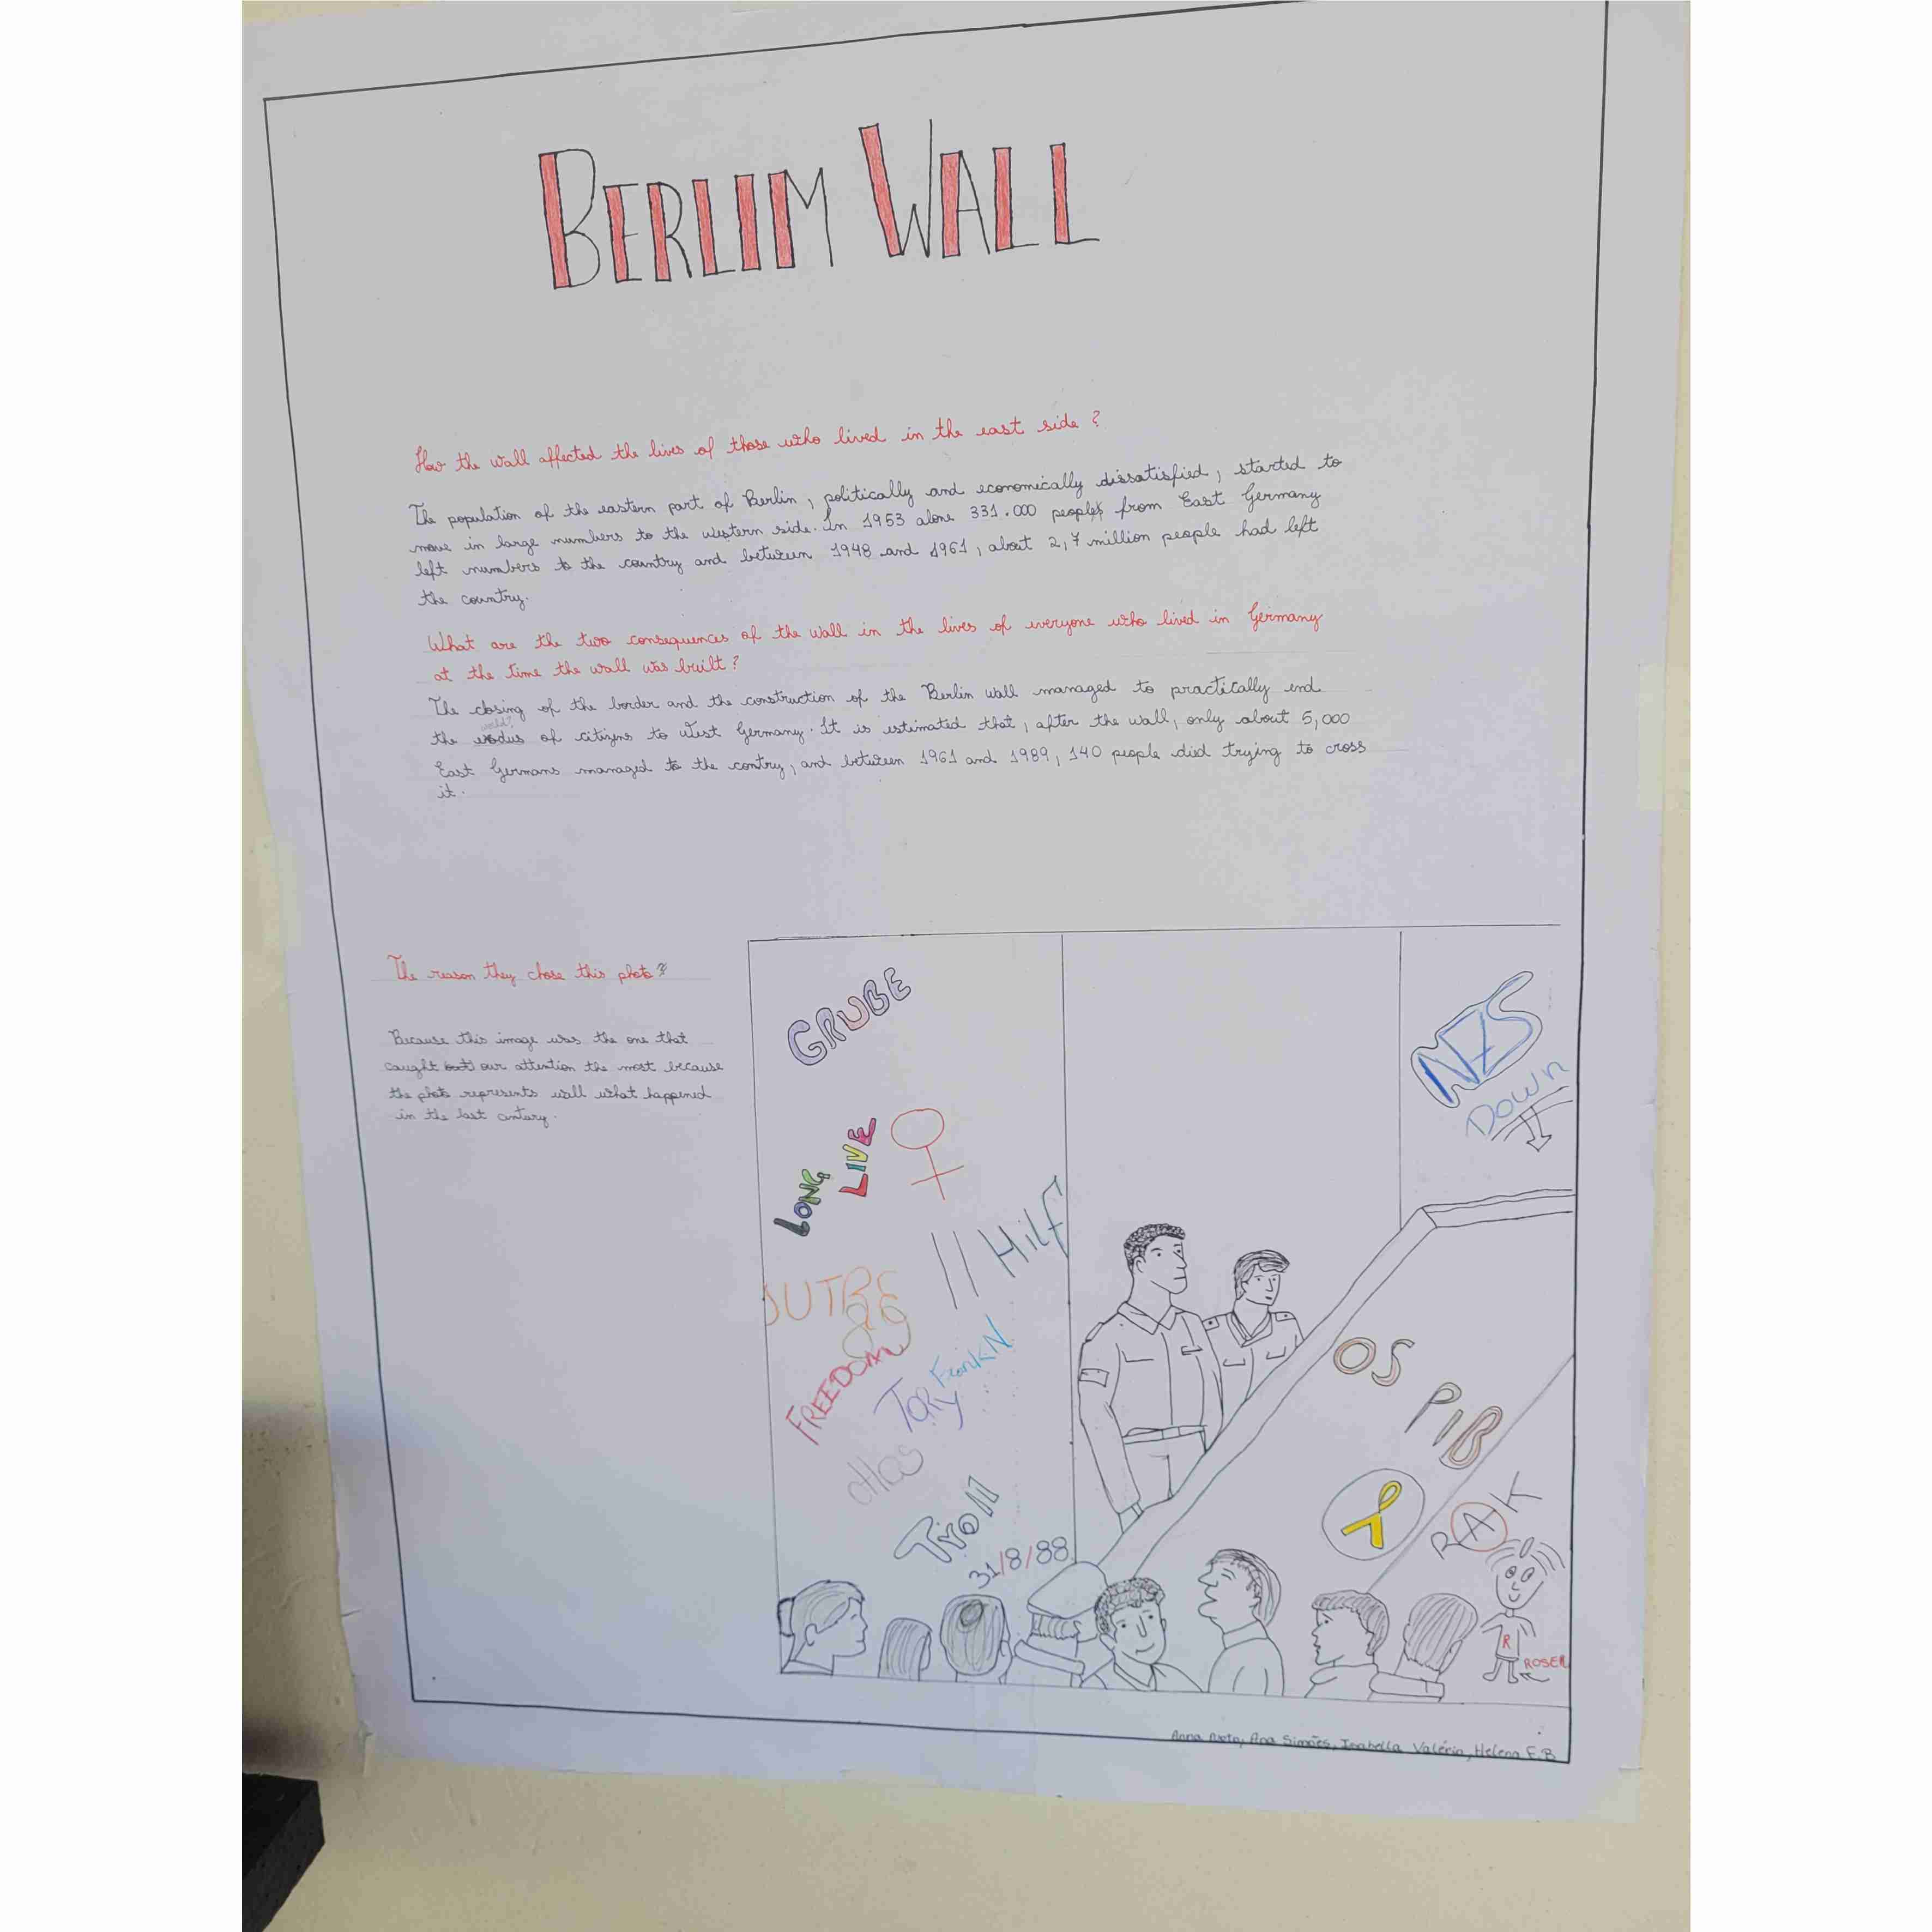 BERLIM WALL
How the wall affected the lives of those who lived in the east side ?
The population of the eastern part of Berlin, politically and economically dissatisfied, started to
move in large numbers to the western side. In 1953 alone 331.000 people from East Germany
left numbers to the country and between 1948 and 1961, about 2,7 million people had left
the country.
What are the two consequences of the wall in the lives of everyone who lived in Germany
at the time the wall was built?
The closing of the border and the construction of the Berlin wall managed to practically end
the exodus of citizens to West Germany. It is estimated that, after the wall, only about 5,000
East Germans managed to the contry, and between 1961 and 1989, 140 people died trying to cross
it.
The reason they chose this photo?
Because this image was the one that
caught our attention the most because
the photo represents well what happened
in the last century.
GRUBE
NZS
DOWN
LONG
LIVE
Hilf
FREEDOM
TORY
FranKN
OS
PIB
Troll
31/8/88
RAK
R
ROSER
Ana Simões, Isabella Valério, Helena F.B